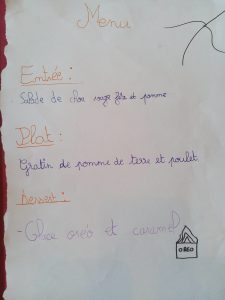 Menu
Entrée :
- Salade de chou rouge féta et pomme
Plat :
Gratin de pomme de terre et poulet
Dessert :
- Glace oréo et caramel
OREO